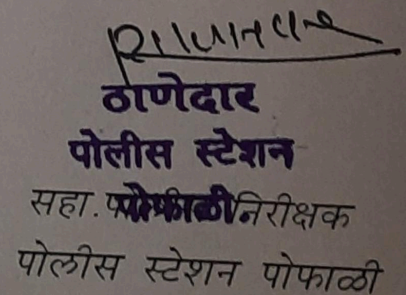 ठाणेदार
पोलीस स्टेशन
सहा. पोफाळी निरीक्षक
पोलीस स्टेशन पोफाळी